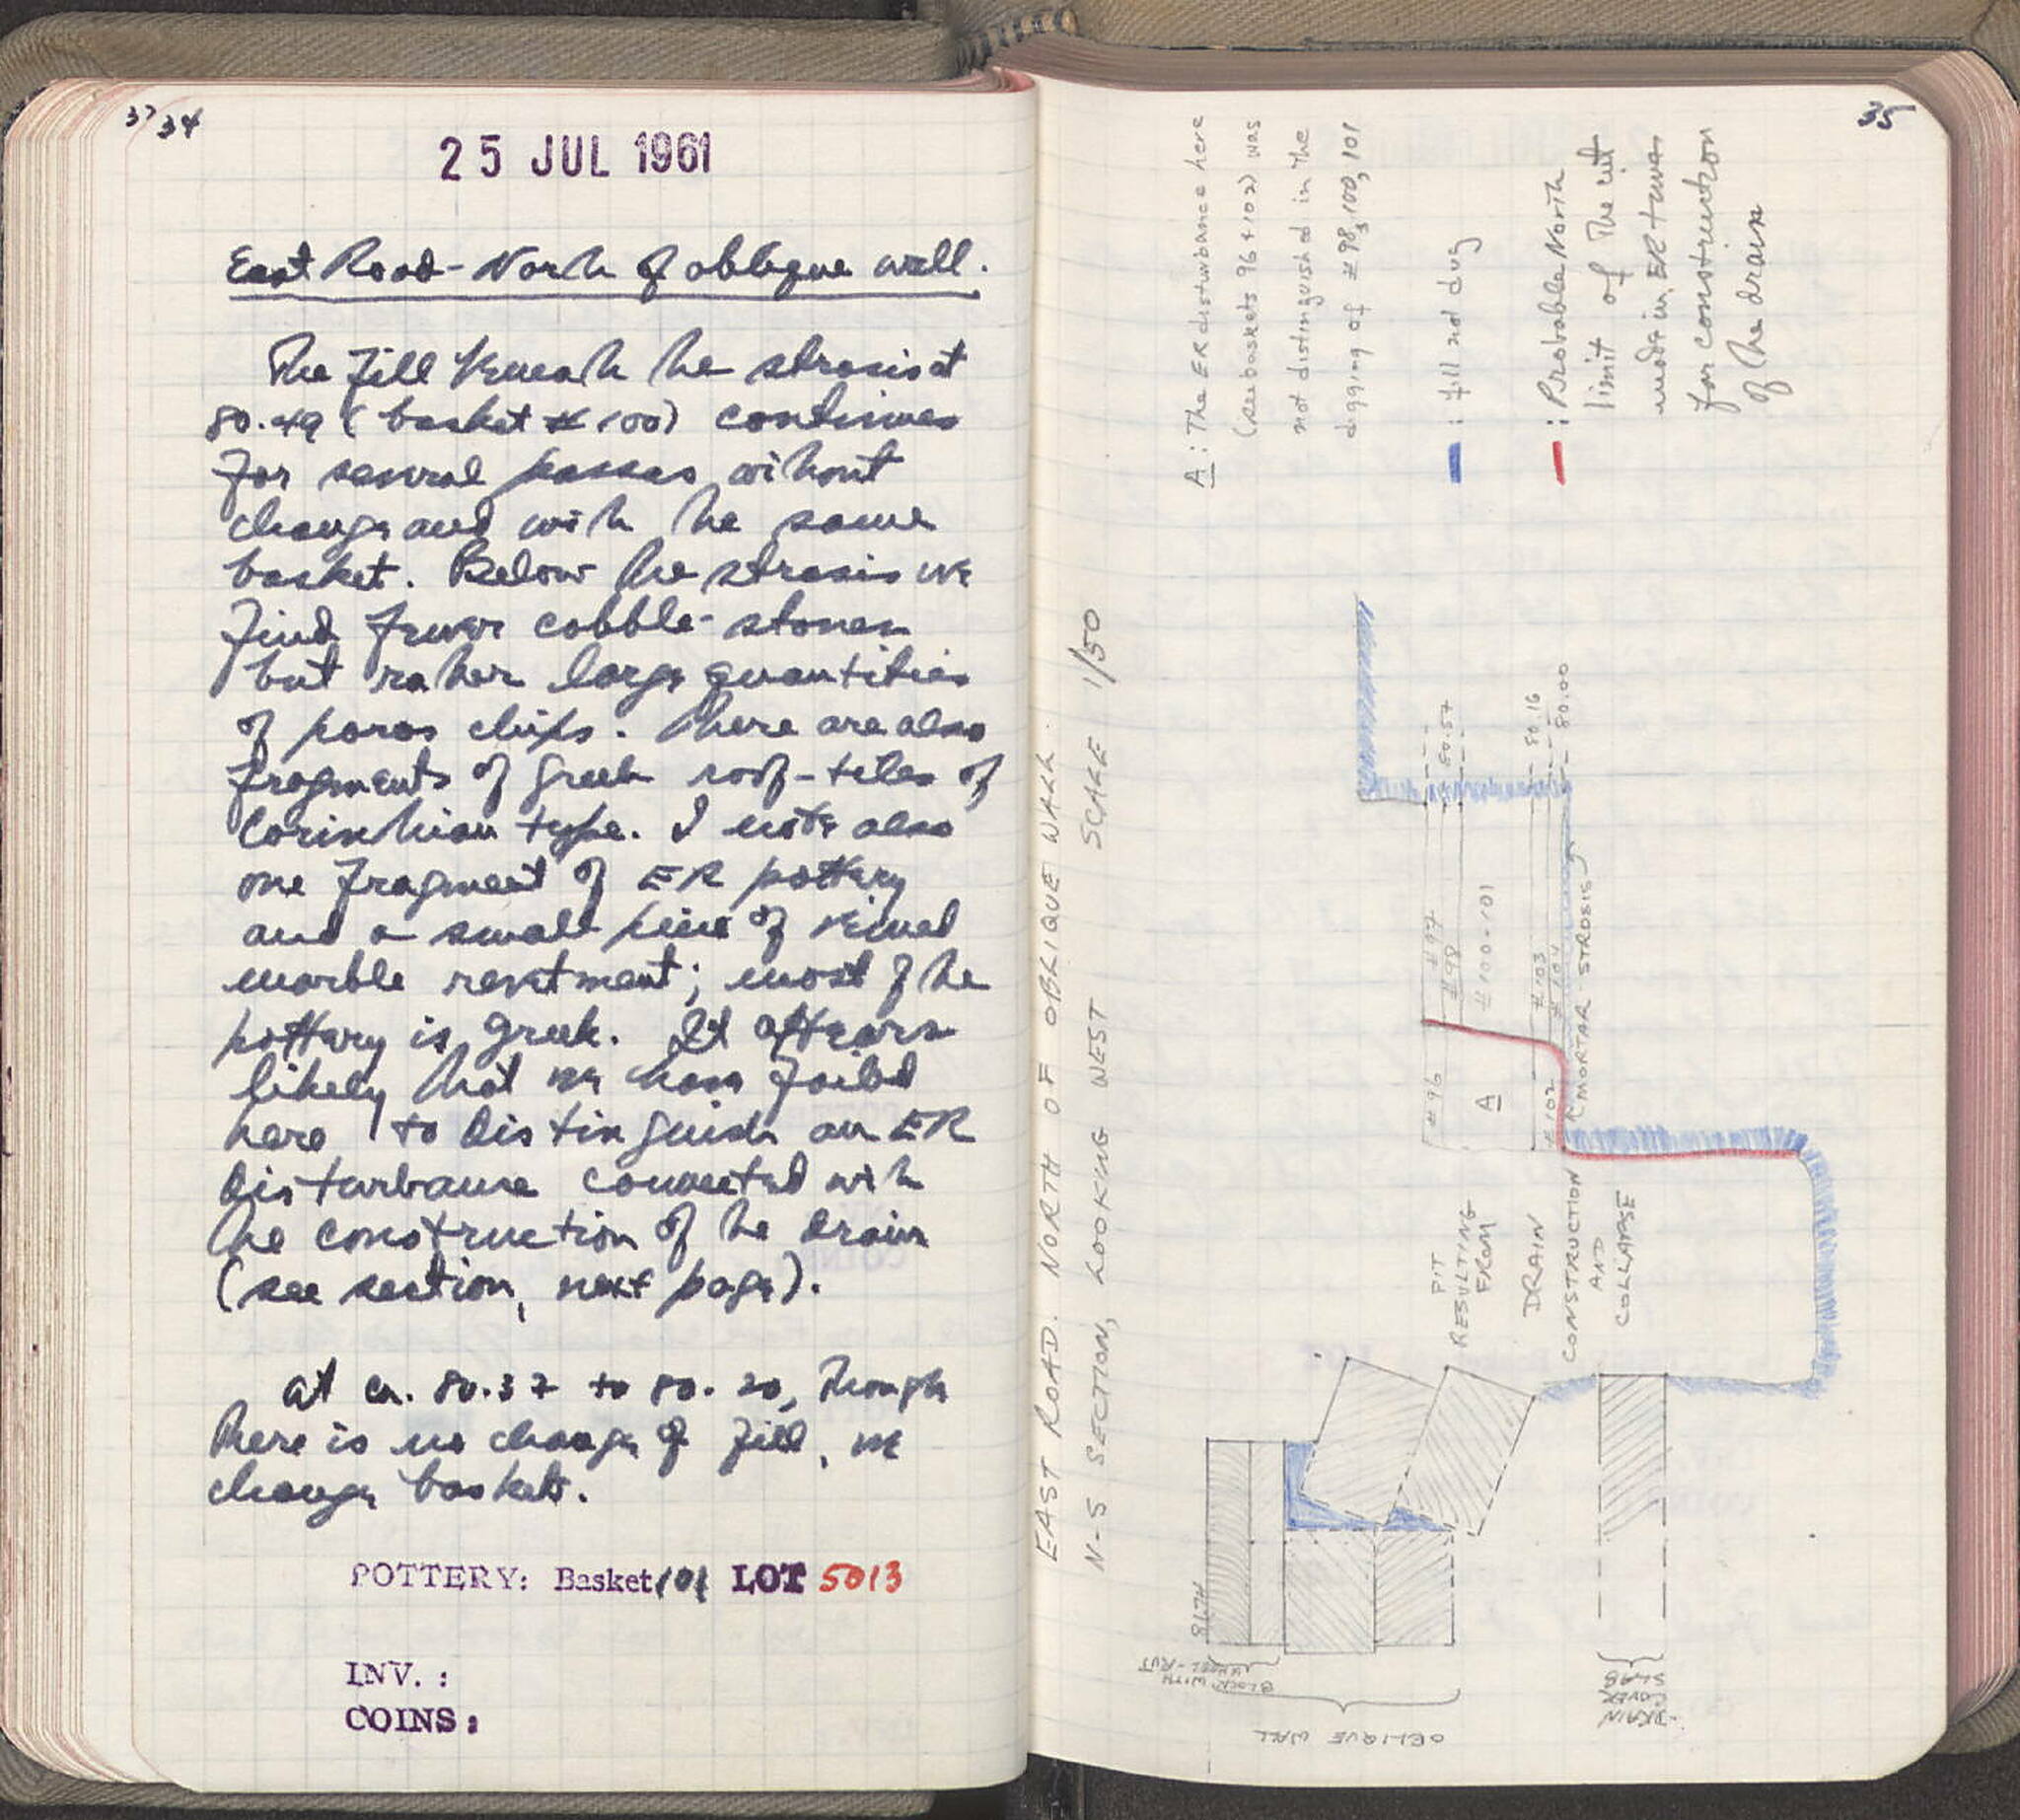 37 34
25 JUL 1961
East Road - North of oblique wall.
The fill beneath the strosis at
80.49 (basket # 100) continues
for several passes without
change and with the same
basket. Below the strosis we
find fewer cobble-stones
but rather large quantities
of poros chips. There are also
fragments of Greek roof-tiles of
Corinthian type. I note also
one fragment of ER pottery
and a small piece of veined
marble revetment; most of the
pottery is Greek. It appears
likely that we have failed
here to distinguish an ER
disturbance connected with
the construction of the drain
(see section, next page).
At ca. 80.37 to 80.20, though
there is no change of fill, we
change baskets.
POTTERY: Basket 101 LOT 5013
INV. :
COINS :
35
EAST ROAD. NORTH OF OBLIQUE WALL.
N-S SECTION, LOOKING WEST SCALE 1/50
A: The ER disturbance here
(see baskets 96 + 102) was
not distinguished in the
digging of # 98, 100, 101
: fill not dug
: Probable North
limit of the cut
made in ER times
for construction
of the drain
80.57
80.16
80.00
# 97
# 98
# 100-101
# 103
# 104
MORTAR STROSIS
# 96
A
# 102
PIT
RESULTING
FROM
DRAIN
CONSTRUCTION
AND
COLLAPSE
BLOCK WITH
WHEEL-RUT
OBLIQUE WALL
DRAIN
COVER
SLAB